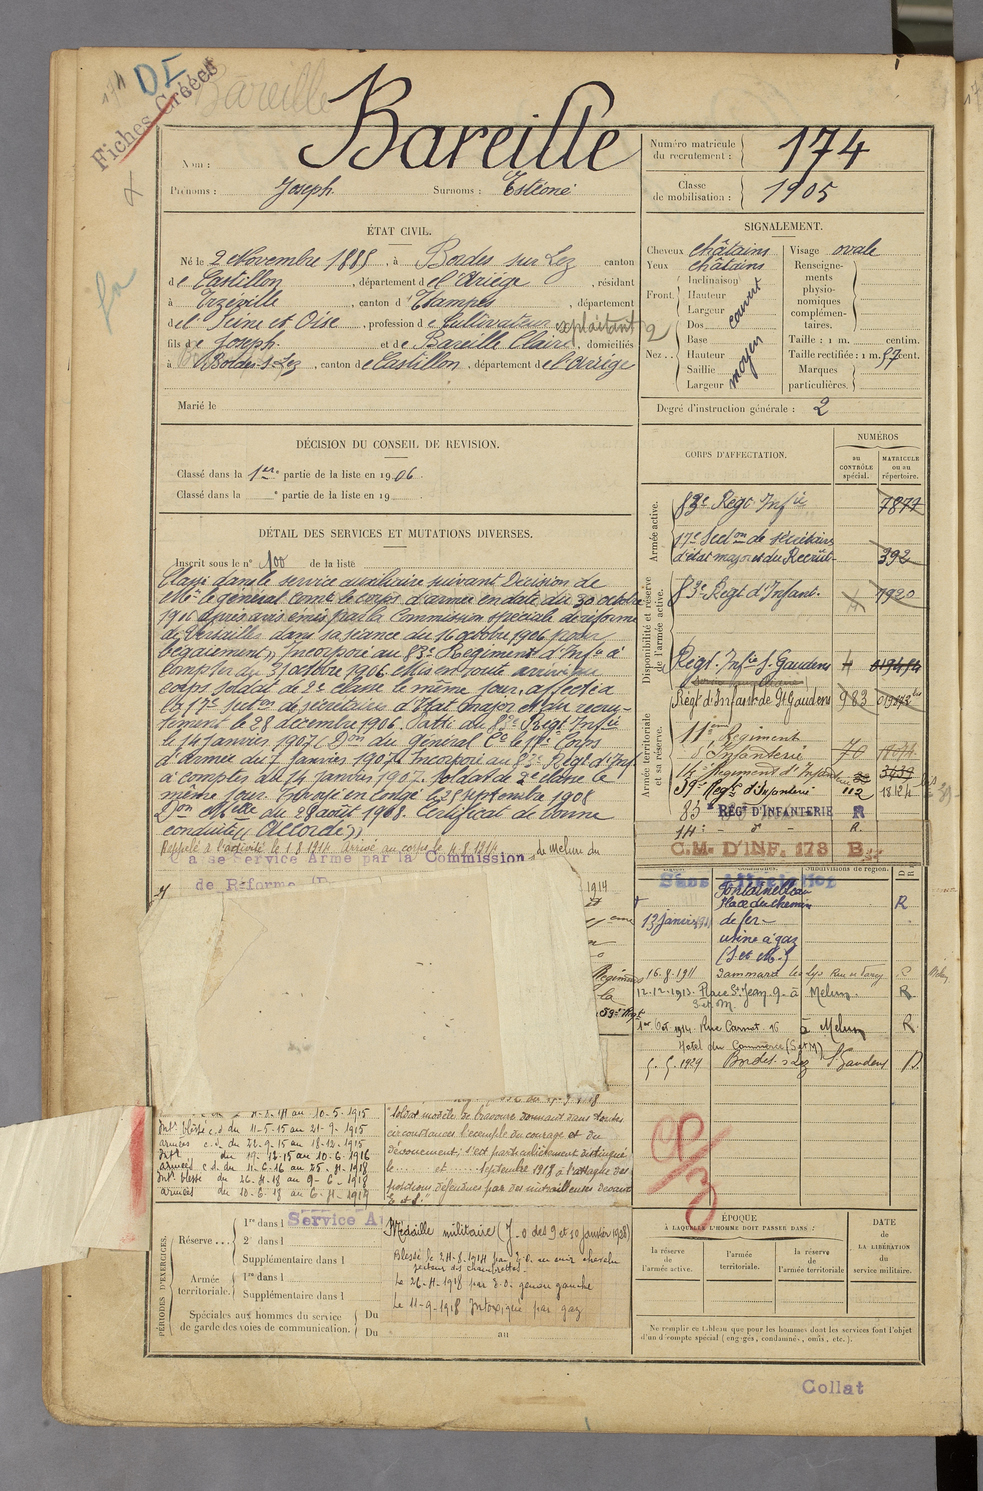 174 DI
Fiches Créées
Bareille
Nom : Bareille
Prénoms : Joseph Surnoms : Estéone
Numéro matricule du recrutement : 174
Classe de mobilisation : 1905
ÉTAT CIVIL.
Né le 2 Novembre 1885, à Bordes sur Lez canton
de Castillon, département de l'Ariège, résidant
à , canton d'Etampes, département
de Seine et Oise, profession de Cultivateur exploitant 2
fils de Joseph et de Bareille Claire, domiciliés
à Bordes-s-Lez, canton de Castillon, département de l'Ariège
Marié le
SIGNALEMENT.
Cheveux châtains
Yeux châtains
Front. Inclinaison Hauteur Largeur couvert
Nez .. Dos Base Hauteur Saillie Largeur moyen
Visage ovale
Renseignements physionomiques complémentaires.
Taille : 1 m. centim.
Taille rectifiée : 1 m. 57 cent.
Marques particulières.
Degré d'instruction générale : 2
DÉCISION DU CONSEIL DE REVISION.
Classé dans la 1ère partie de la liste en 1906.
Classé dans la e partie de la liste en 19
DÉTAIL DES SERVICES ET MUTATIONS DIVERSES.
Inscrit sous le n° 100 de la liste
Classé dans le service auxiliaire suivant Décision de
Mr le général comt le corps d'armée en date du 30 octobre
1906 après avis émis par la Commission spéciale de réforme
de Versailles dans sa séance du 16 octobre 1906 pour
bégaiement. Incorporé au 83e Régiment d'Infie à
compter du 31 octobre 1906. Mis en route arrivé au
corps soldat de 2e classe le même jour, affecté à
la 17e Section de secrétaires d'Etat major et du recru-
tement le 28 décembre 1906. Passé du 83e Régt Infie
le 14 Janvier 1907 (Don du Général Ct le 17e Corps
d'armée du 7 Janvier 1907. Incorporé au 83e Régt d'Inf
à compter du 14 janvier 1907. Soldat de 2e classe le
même jour. Envoyé en congé le 25 septembre 1908
Don Mlle du 28 août 1908. Certificat de bonne
conduite « Accordé »
Rappelé à l'activité le 1.8.1914. Arrivé au corps le 4.8.1914
Classé Service Armé par la Commission de Melun du
de Réforme
1914
Régiment
la
59e Régt
CORPS D'AFFECTATION.
NUMÉROS
au CONTRÔLE spécial.
MATRICULE ou au répertoire.
Armée active.
83e Régt Infie 7877
17e Secton de secrétaires
d'état major et du Recrut- 392
Disponibilité et réserve de l'armée active.
83e Régt d'Infant. 1920
Régt. Infie St Gaudens
Régt d'Infant de St Gaudens 983
Armée territoriale et sa réserve.
11ème Régiment
d'Infanterie 70
14e Régiment d'Infanterie
59e Régt d'Infanterie 112 18124
83e RÉGT D'INFANTERIE R
14e - d° - R.
C.M. D'INF. 178 B
Sans Affectation
Subdivisions de région.
13 Janvier
Fontainebleau
Place du chemin
de fer -
usine à gaz
(S. et M.)
R
16.8.1911 Dammarie les Lys
12.12.1913. Place St Jean 9 à Melun. R
S et M.
1er Oct 1914 Rue Carnot 16 à Melun R
Hôtel du Commerce (S et M)
5.5.1929 Bordes s Lez St Gaudens
au 10-5-1915
Intr blessé c.d. du 11-5-15 au 21-9-1915
armées c.d. du 22-9-15 au 18-12-1915
Intr du 19-12-15 au 10-6-1916
armées c.d. du 11-6-16 au 25-4-1918
Intr blessé du 26-4-18 au 9-6-1918
armées du 10-6-18 au 6-4-1919
"Soldat modèle de bravoure donnant dans toutes
circonstances l'exemple du courage et du
dévouement, s'est particulièrement distingué
le ..... et ..... septembre 1918 à l'attaque des
positions défendues par des mitrailleuses devant
E et S."
PÉRIODES D'EXERCICES.
Réserve ...
1re dans l Service A
2e dans l
Supplémentaire dans l
Armée territoriale.
1re dans l
Supplémentaire dans l
Spéciales aux hommes du service de garde des voies de communication.
Du
Du au
Médaille militaire (J.O des 9 et 10 janvier 1928)
Blessé le 24-8-1914 par
Le 26-4-1918 par E.O. genou gauche
Le 11-9-1918 Intoxiqué par gaz
ÉPOQUE
À LAQUELLE L'HOMME DOIT PASSER DANS :
la réserve de l'armée active.
l'armée territoriale.
la réserve de l'armée territoriale
DATE DE LA LIBÉRATION du service militaire.
Ne remplir ce tableau que pour les hommes dont les services font l'objet
d'un décompte spécial (engagés, condamnés, omis, etc.).
Collat